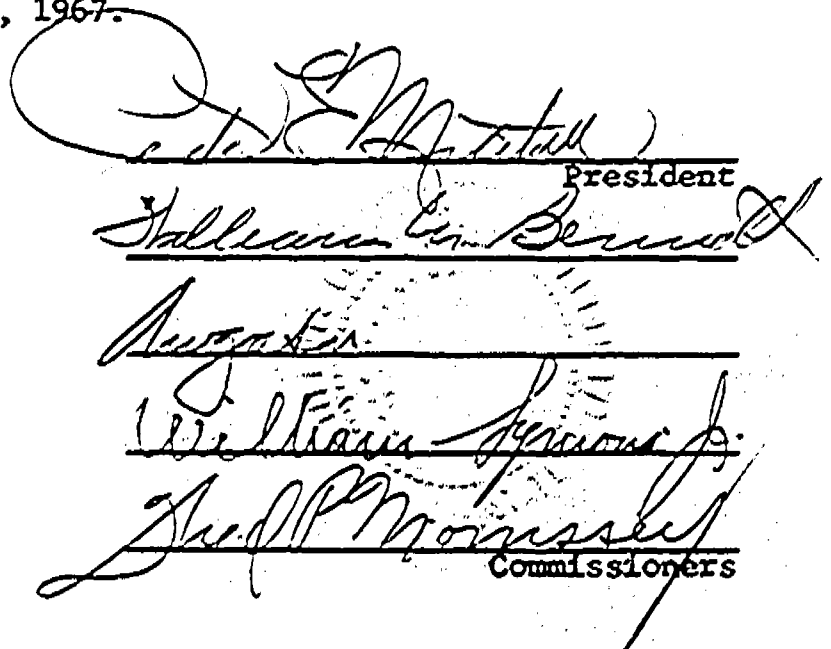 , 1967.
E Mitchell
President
William M. Bennett
William Symons Jr.
Fred P Morrissey
Commissioners